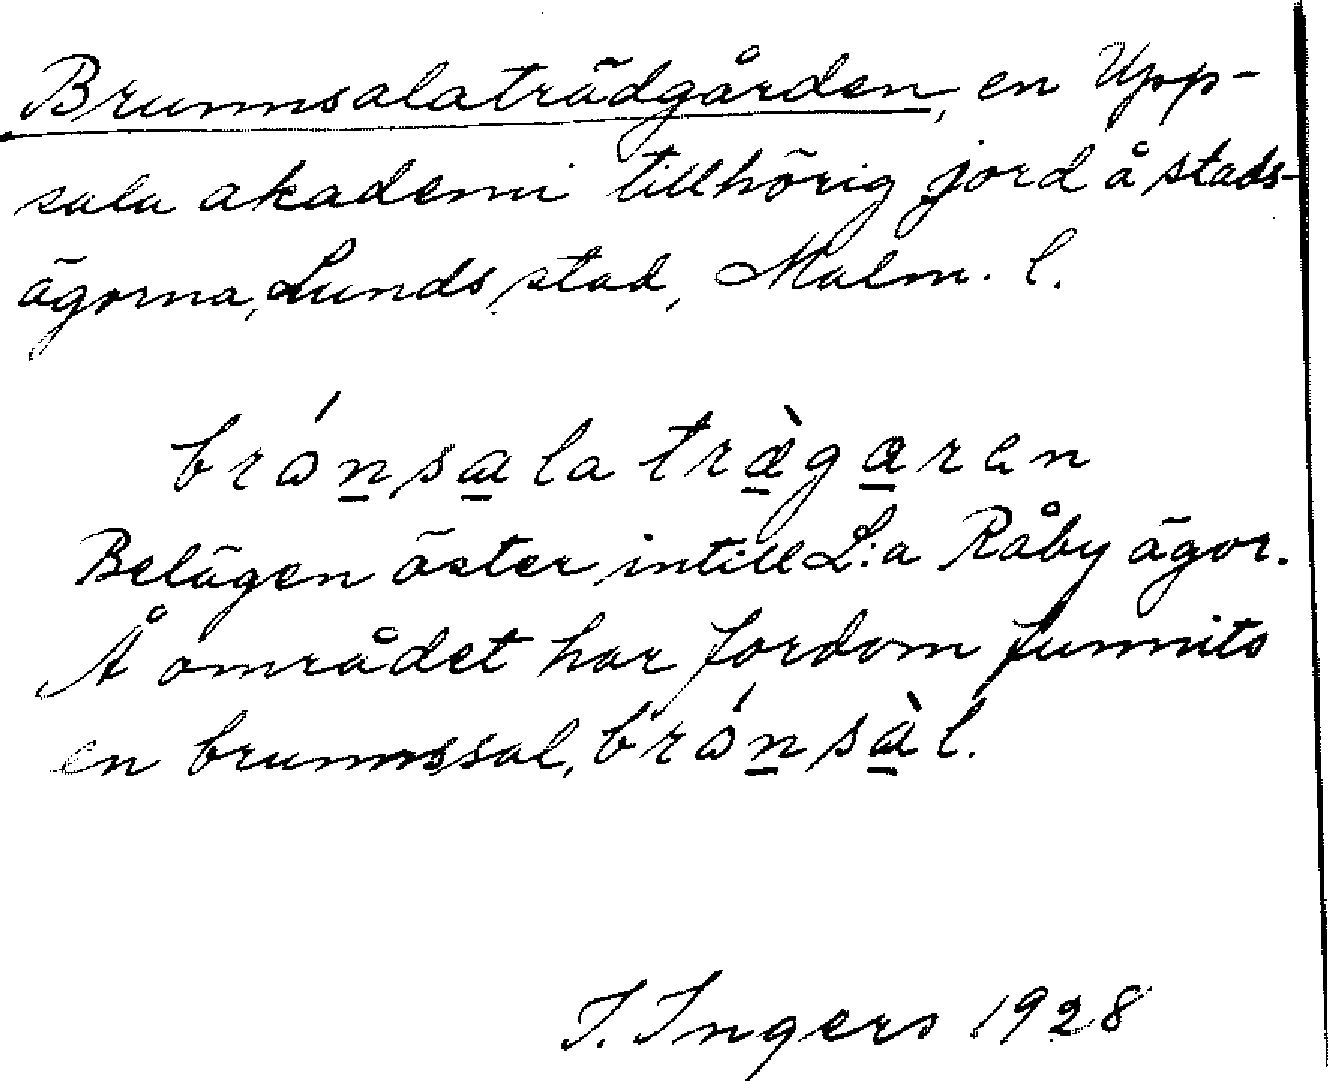 Brunnsalaträdgården, en Upp-
sala akademi tillhörig jord å stads-
ägorna, Lunds stad, Malm. l.
brónsala trægaren
Belägen öster intill L:a Råby ägor.
Å området har fordom funnits
en brunnssal, brónsàl.
I. Ingers 1928